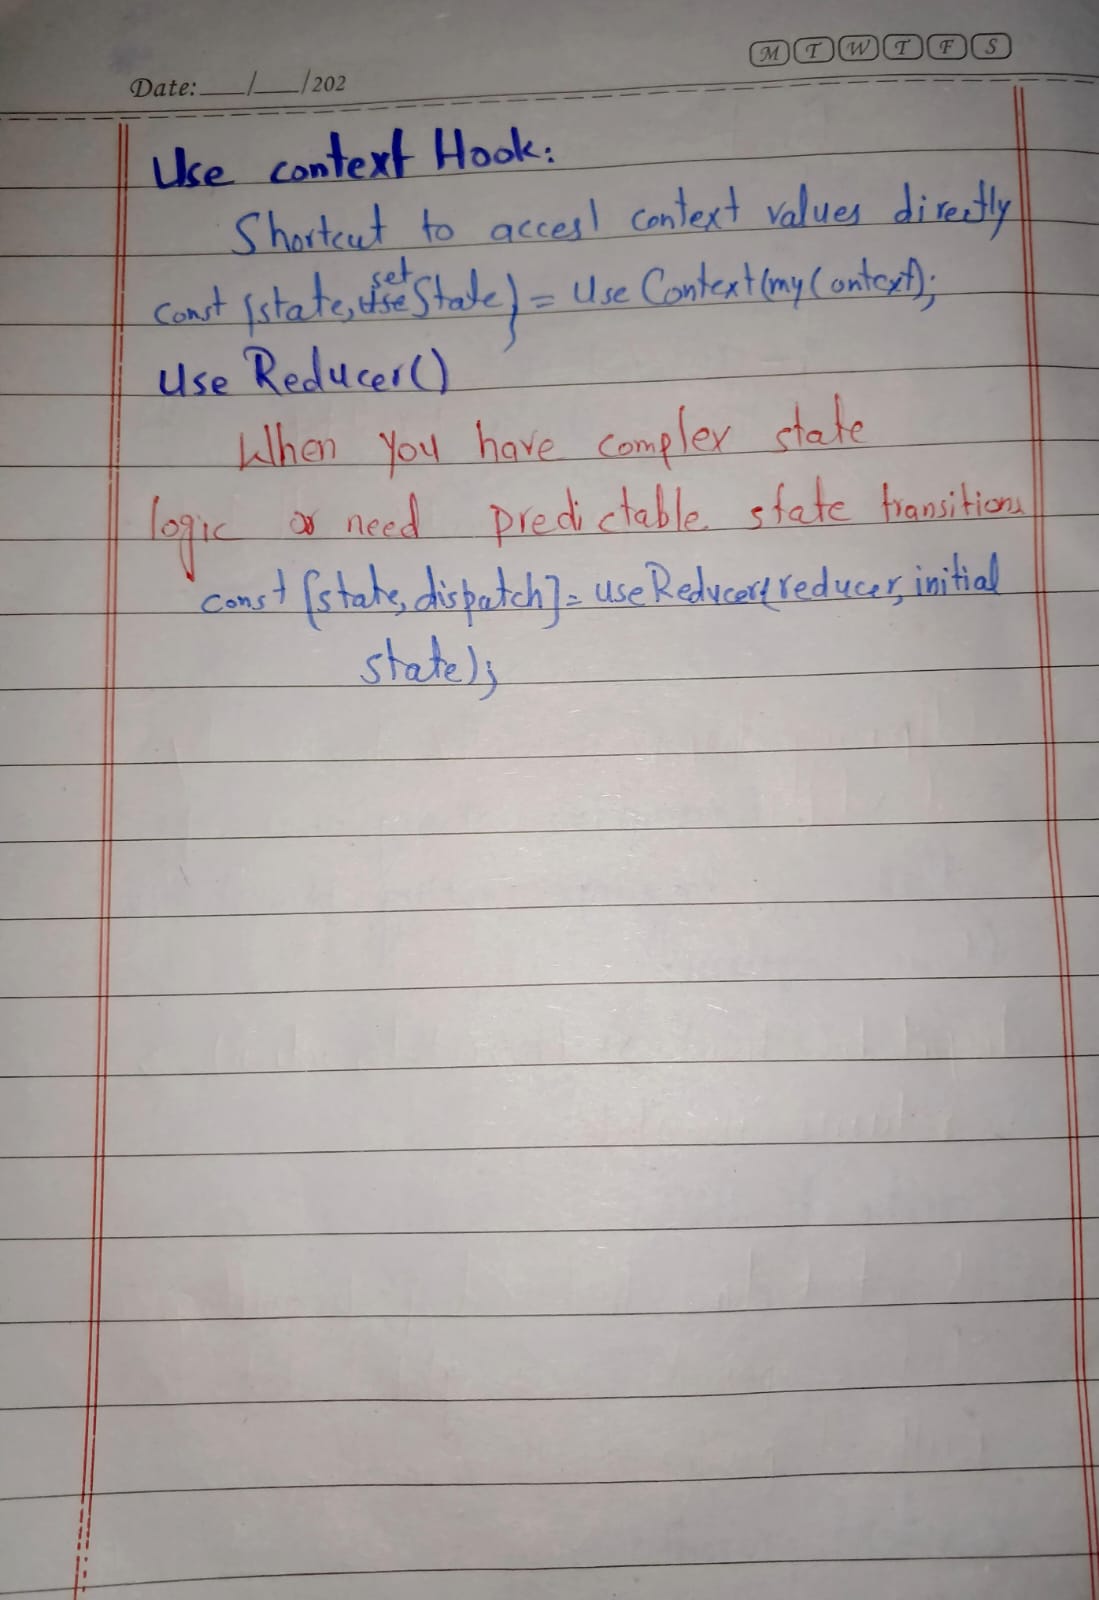 M T W T F S
Date:___/___/202
Use context Hook:
Shortcut to access context values directly
set
const {state, useState} = Use Context(myContext);
Use Reducer()
When you have complex state
logic or need predictable state transitions
const [state, dispatch] = useReducer(reducer, initial
state);